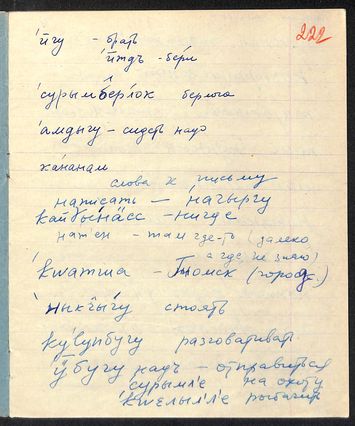 222
'йгу - брать
'йтдъ - бери
'сурымбер'лок берлога
'амдыгу - сидеть надо
ка́нанам
слова к письму
написать - на́чыргу
кайбы́на́сс - нигде
нат'ен - там где-то (далеко
а где не знаю)
'кwатша - Томск (город.)
'ныкгы́гу стоять
ку́лупбугу разговаривать
ӱ́бугу надъ - отправиться
сурымл'е на охоту
'кwелы́л'е рыбачить